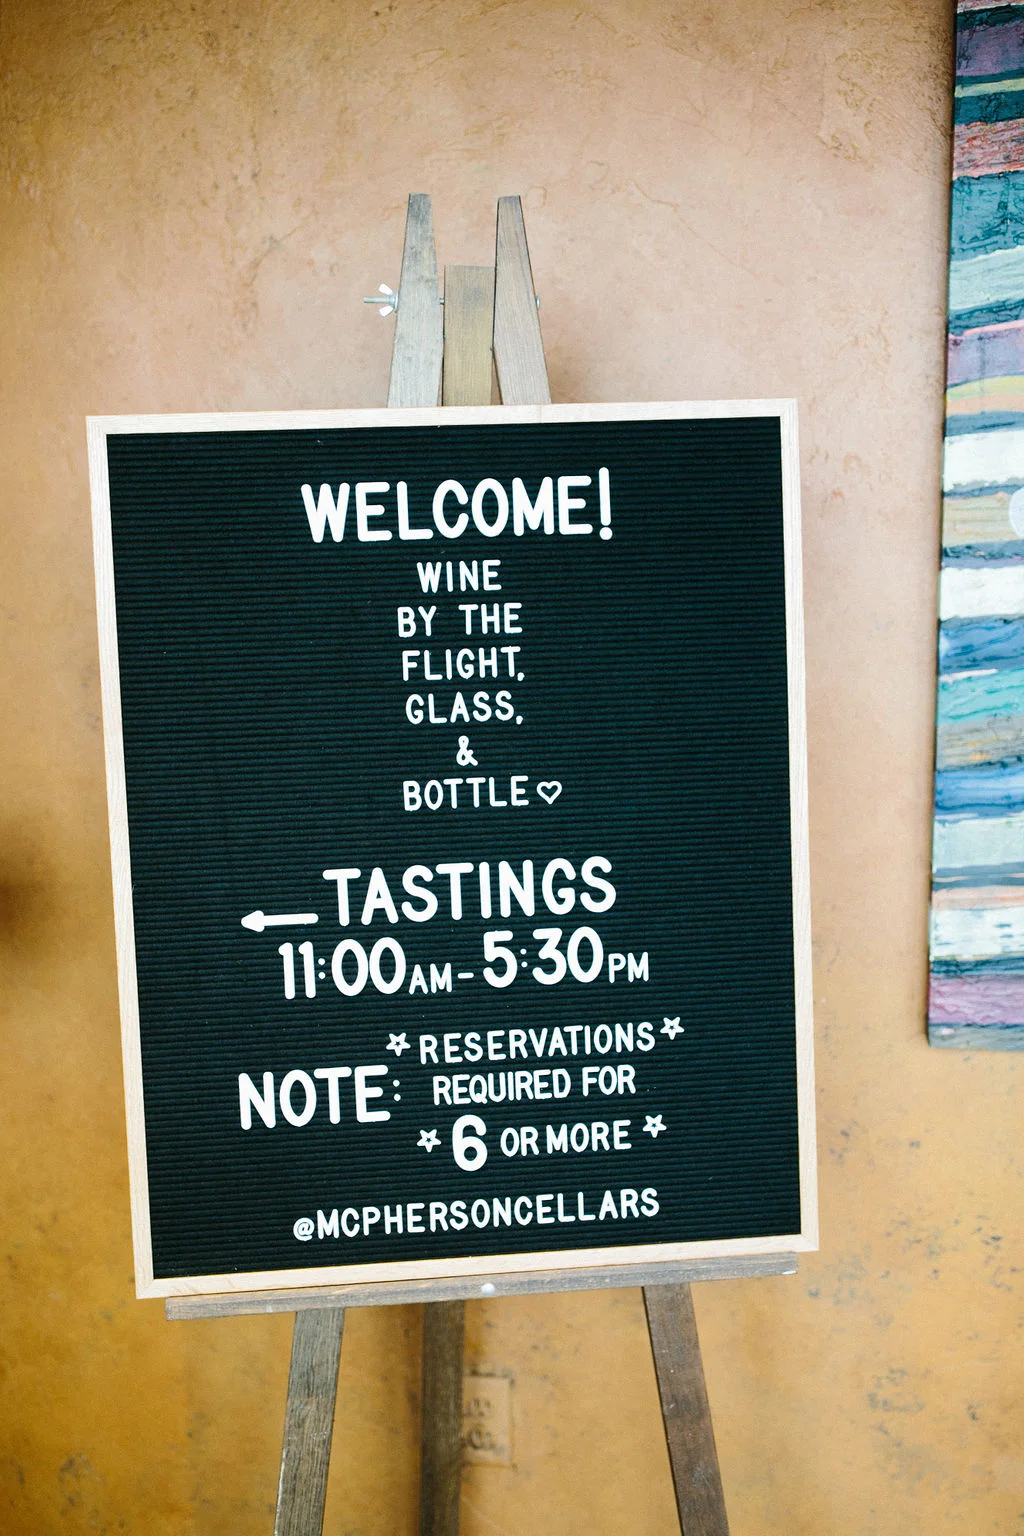 WELCOME!
WINE
BY THE
FLIGHT,
GLASS,
&
BOTTLE♡
←TASTINGS
11:00AM-5:30PM
☆RESERVATIONS☆
NOTE: REQUIRED FOR
☆6 OR MORE☆
@MCPHERSONCELLARS